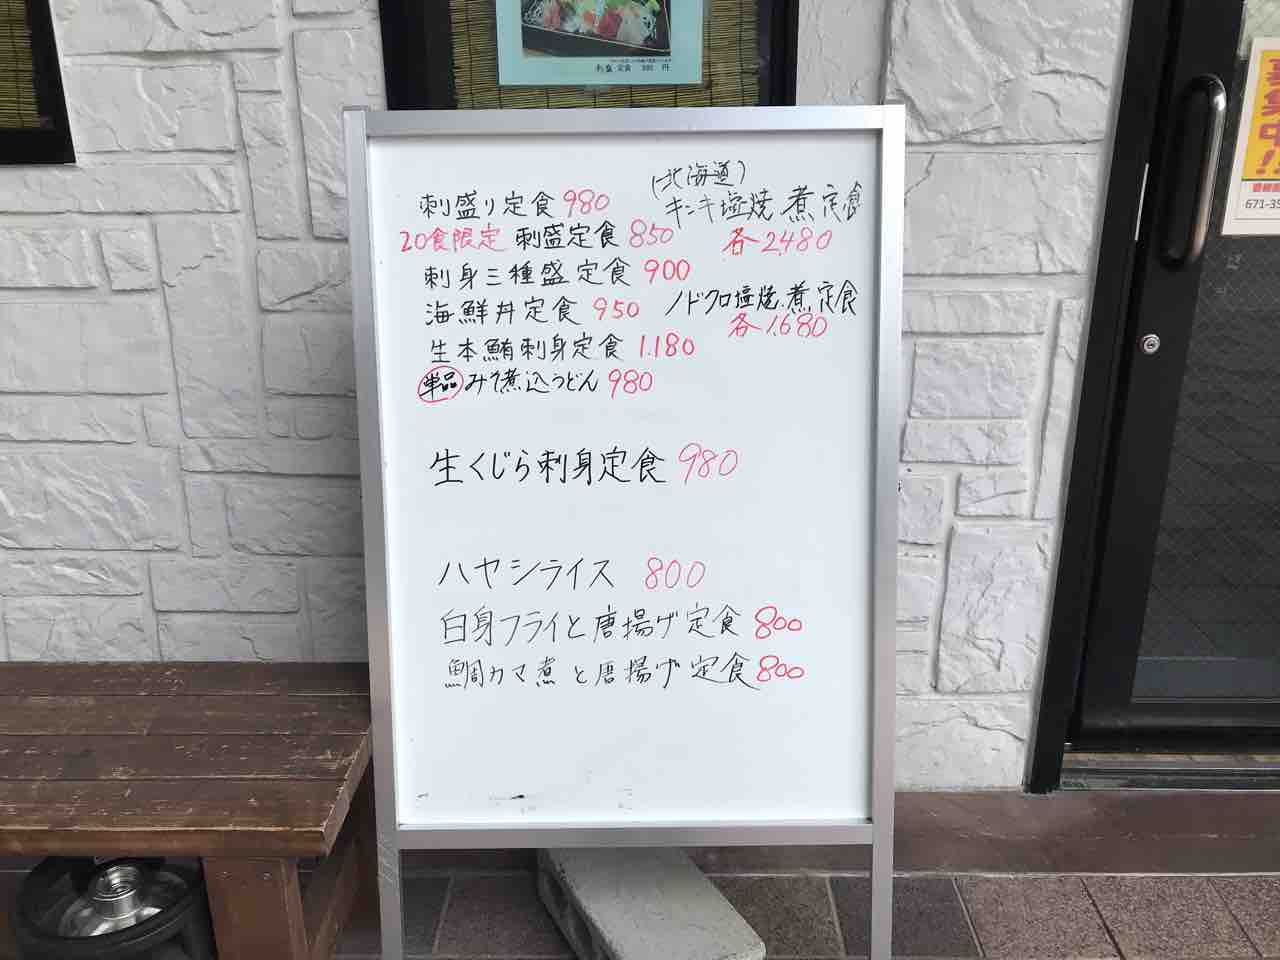 刺盛 定食 980 円
刺盛り定食 980
20食限定 刺盛定食 850
刺身三種盛定食 900
海鮮丼定食 950
生本鮪刺身定食 1.180
単品 みそ煮込うどん 980
(北海道)
キンキ塩焼 煮 定食
各2,480
ノドクロ塩焼.煮.定食
各1.680
生くじら刺身定食 980
ハヤシライス 800
白身フライと唐揚げ定食 800
鯛カマ煮と唐揚げ定食 800
募集中!!
671-35